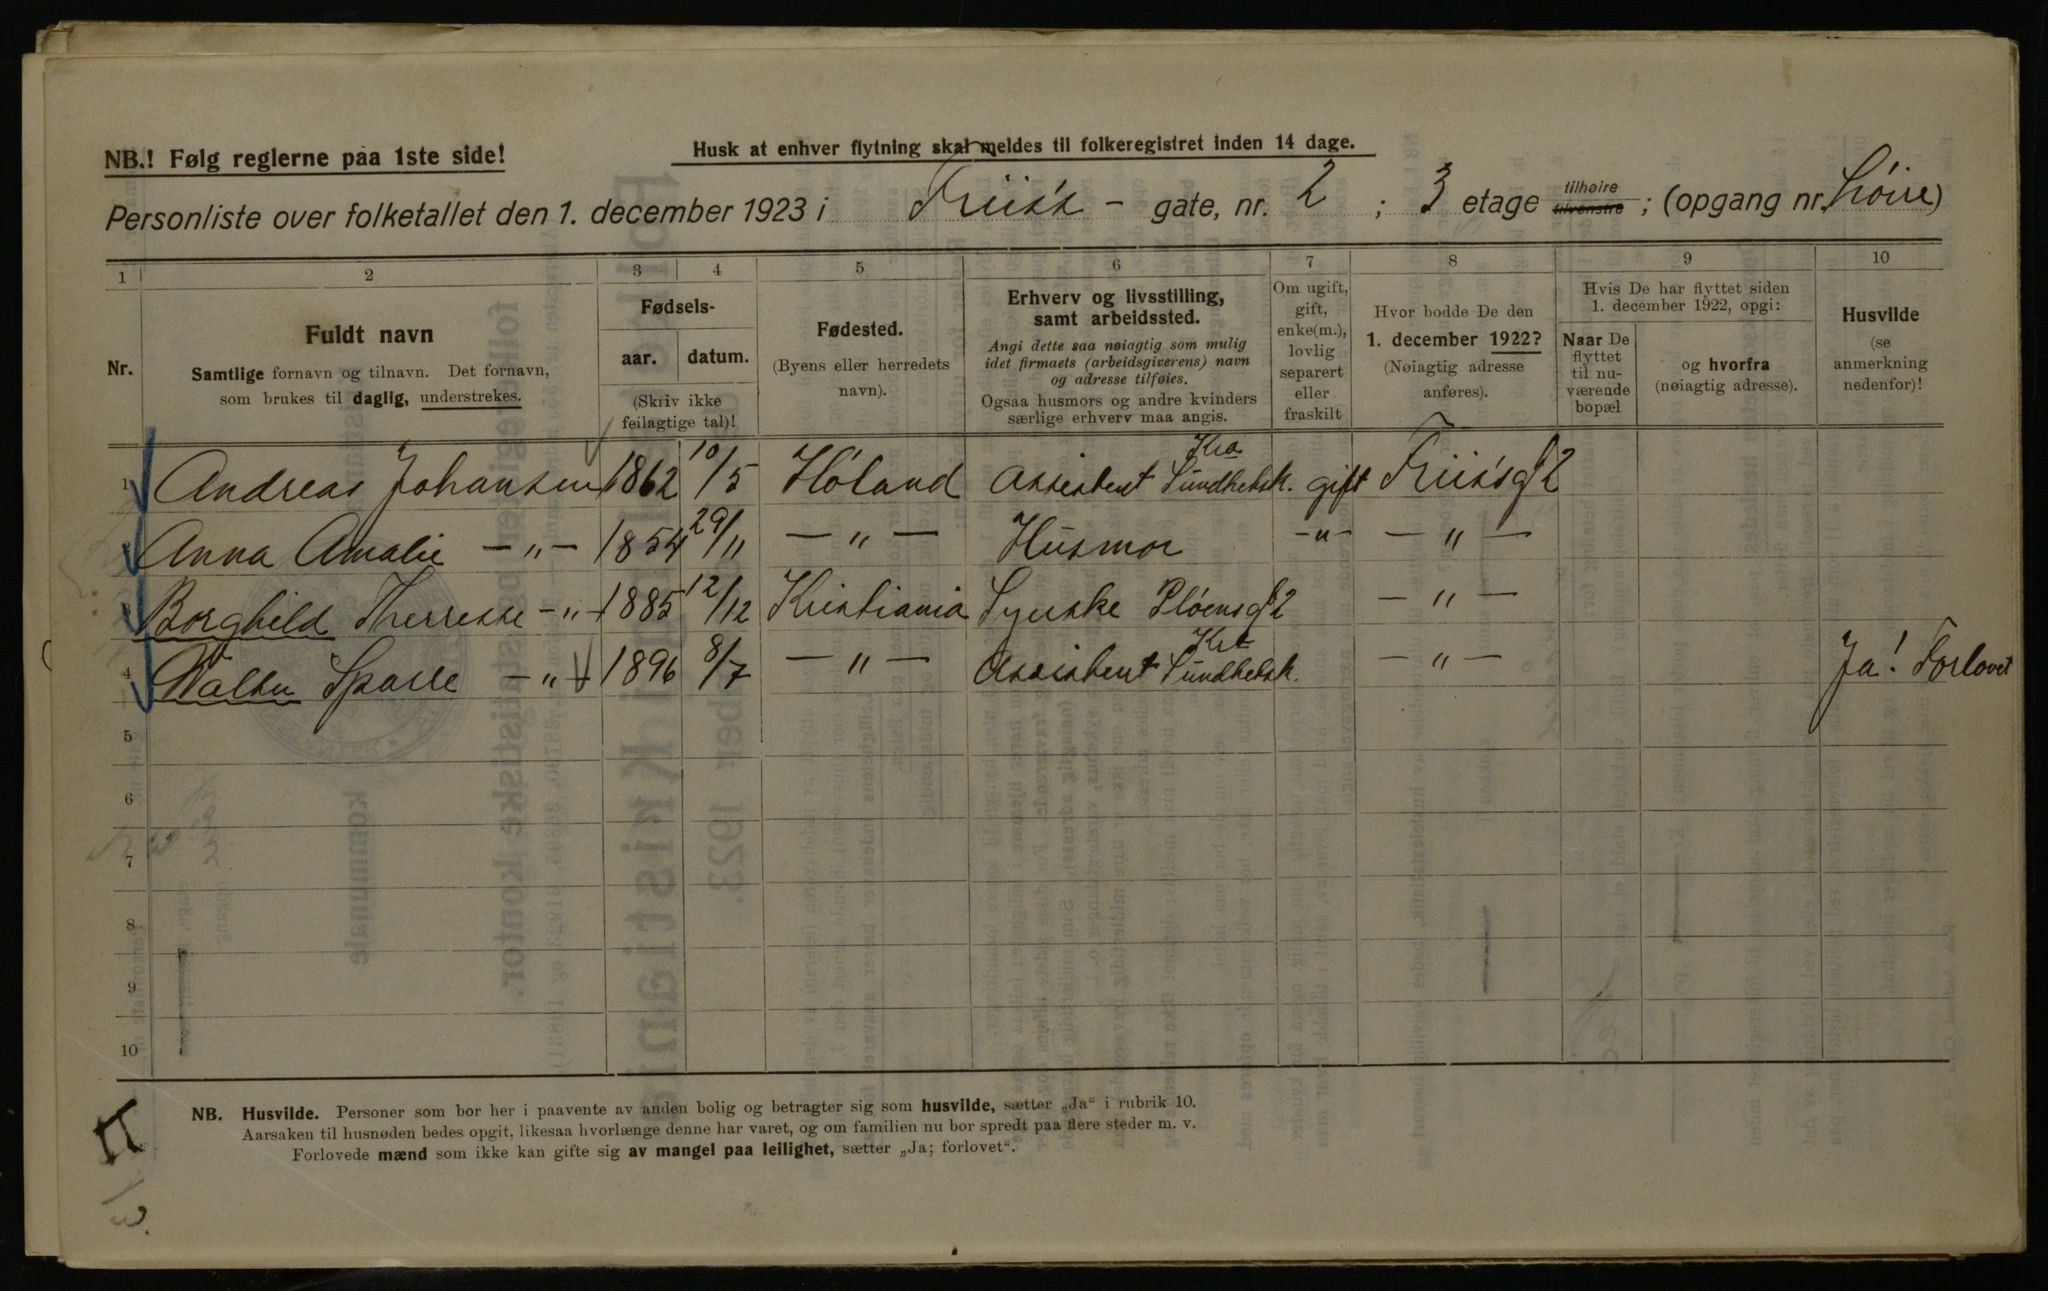 NB.! Følg reglerne paa 1ste side!
Husk at enhver flytning skal meldes til folkeregistret inden 14 dage.
Personliste over folketallet den 1. december 1923 i Friis's - gate, nr. 2 ; 3 etage tilhøire tilvenstre ; (opgang nr. höire)
1 2 3 4 5 6 7 8 9 10
Nr.
Fuldt navn
Samtlige fornavn og tilnavn. Det fornavn,
som brukes til daglig, understrekes.
Fødsels-
aar. datum.
(Skriv ikke
feilagtige tal)!
Fødested.
(Byens eller herredets
navn).
Erhverv og livsstilling,
samt arbeidssted.
Angi dette saa nøiagtig som mulig
idet firmaets (arbeidsgiverens) navn
og adresse tilføies.
Ogsaa husmors og andre kvinders
særlige erhverv maa angis.
Om ugift,
gift,
enke(m.),
lovlig
separert
eller
fraskilt
Hvor bodde De den
1. december 1922?
(Nøiagtig adresse
anføres).
Hvis De har flyttet siden
1. december 1922, opgi:
Naar De
flyttet
til nu-
værende
bopæl
og hvorfra
(nøiagtig adresse).
Husvilde
(se
anmerkning
nedenfor)!
1 Andreas Johansen 1862 10/5 Höland Assistent Kra Sundhetsk. gift Friis'sgt 2
2 Anna Amalie — „ — 1854 29/11 — „ — Husmor -„- — „ —
3 Borghild Therresse - „ - 1885 12/12 Kristiania Syerske Plöensgt 2 — „ —
4 Walter Sparre - „ - 1896 8/7 — „ — Assistent Kra Sundhetsk. — „ — Ja! Forlovet
5
6
7
8
9
10
NB. Husvilde. Personer som bor her i paavente av anden bolig og betragter sig som husvilde, sætter „Ja“ i rubrik 10.
Aarsaken til husnøden bedes opgit, likesaa hvorlænge denne har varet, og om familien nu bor spredt paa flere steder m. v.
Forlovede mænd som ikke kan gifte sig av mangel paa leilighet, sætter „Ja; forlovet“.